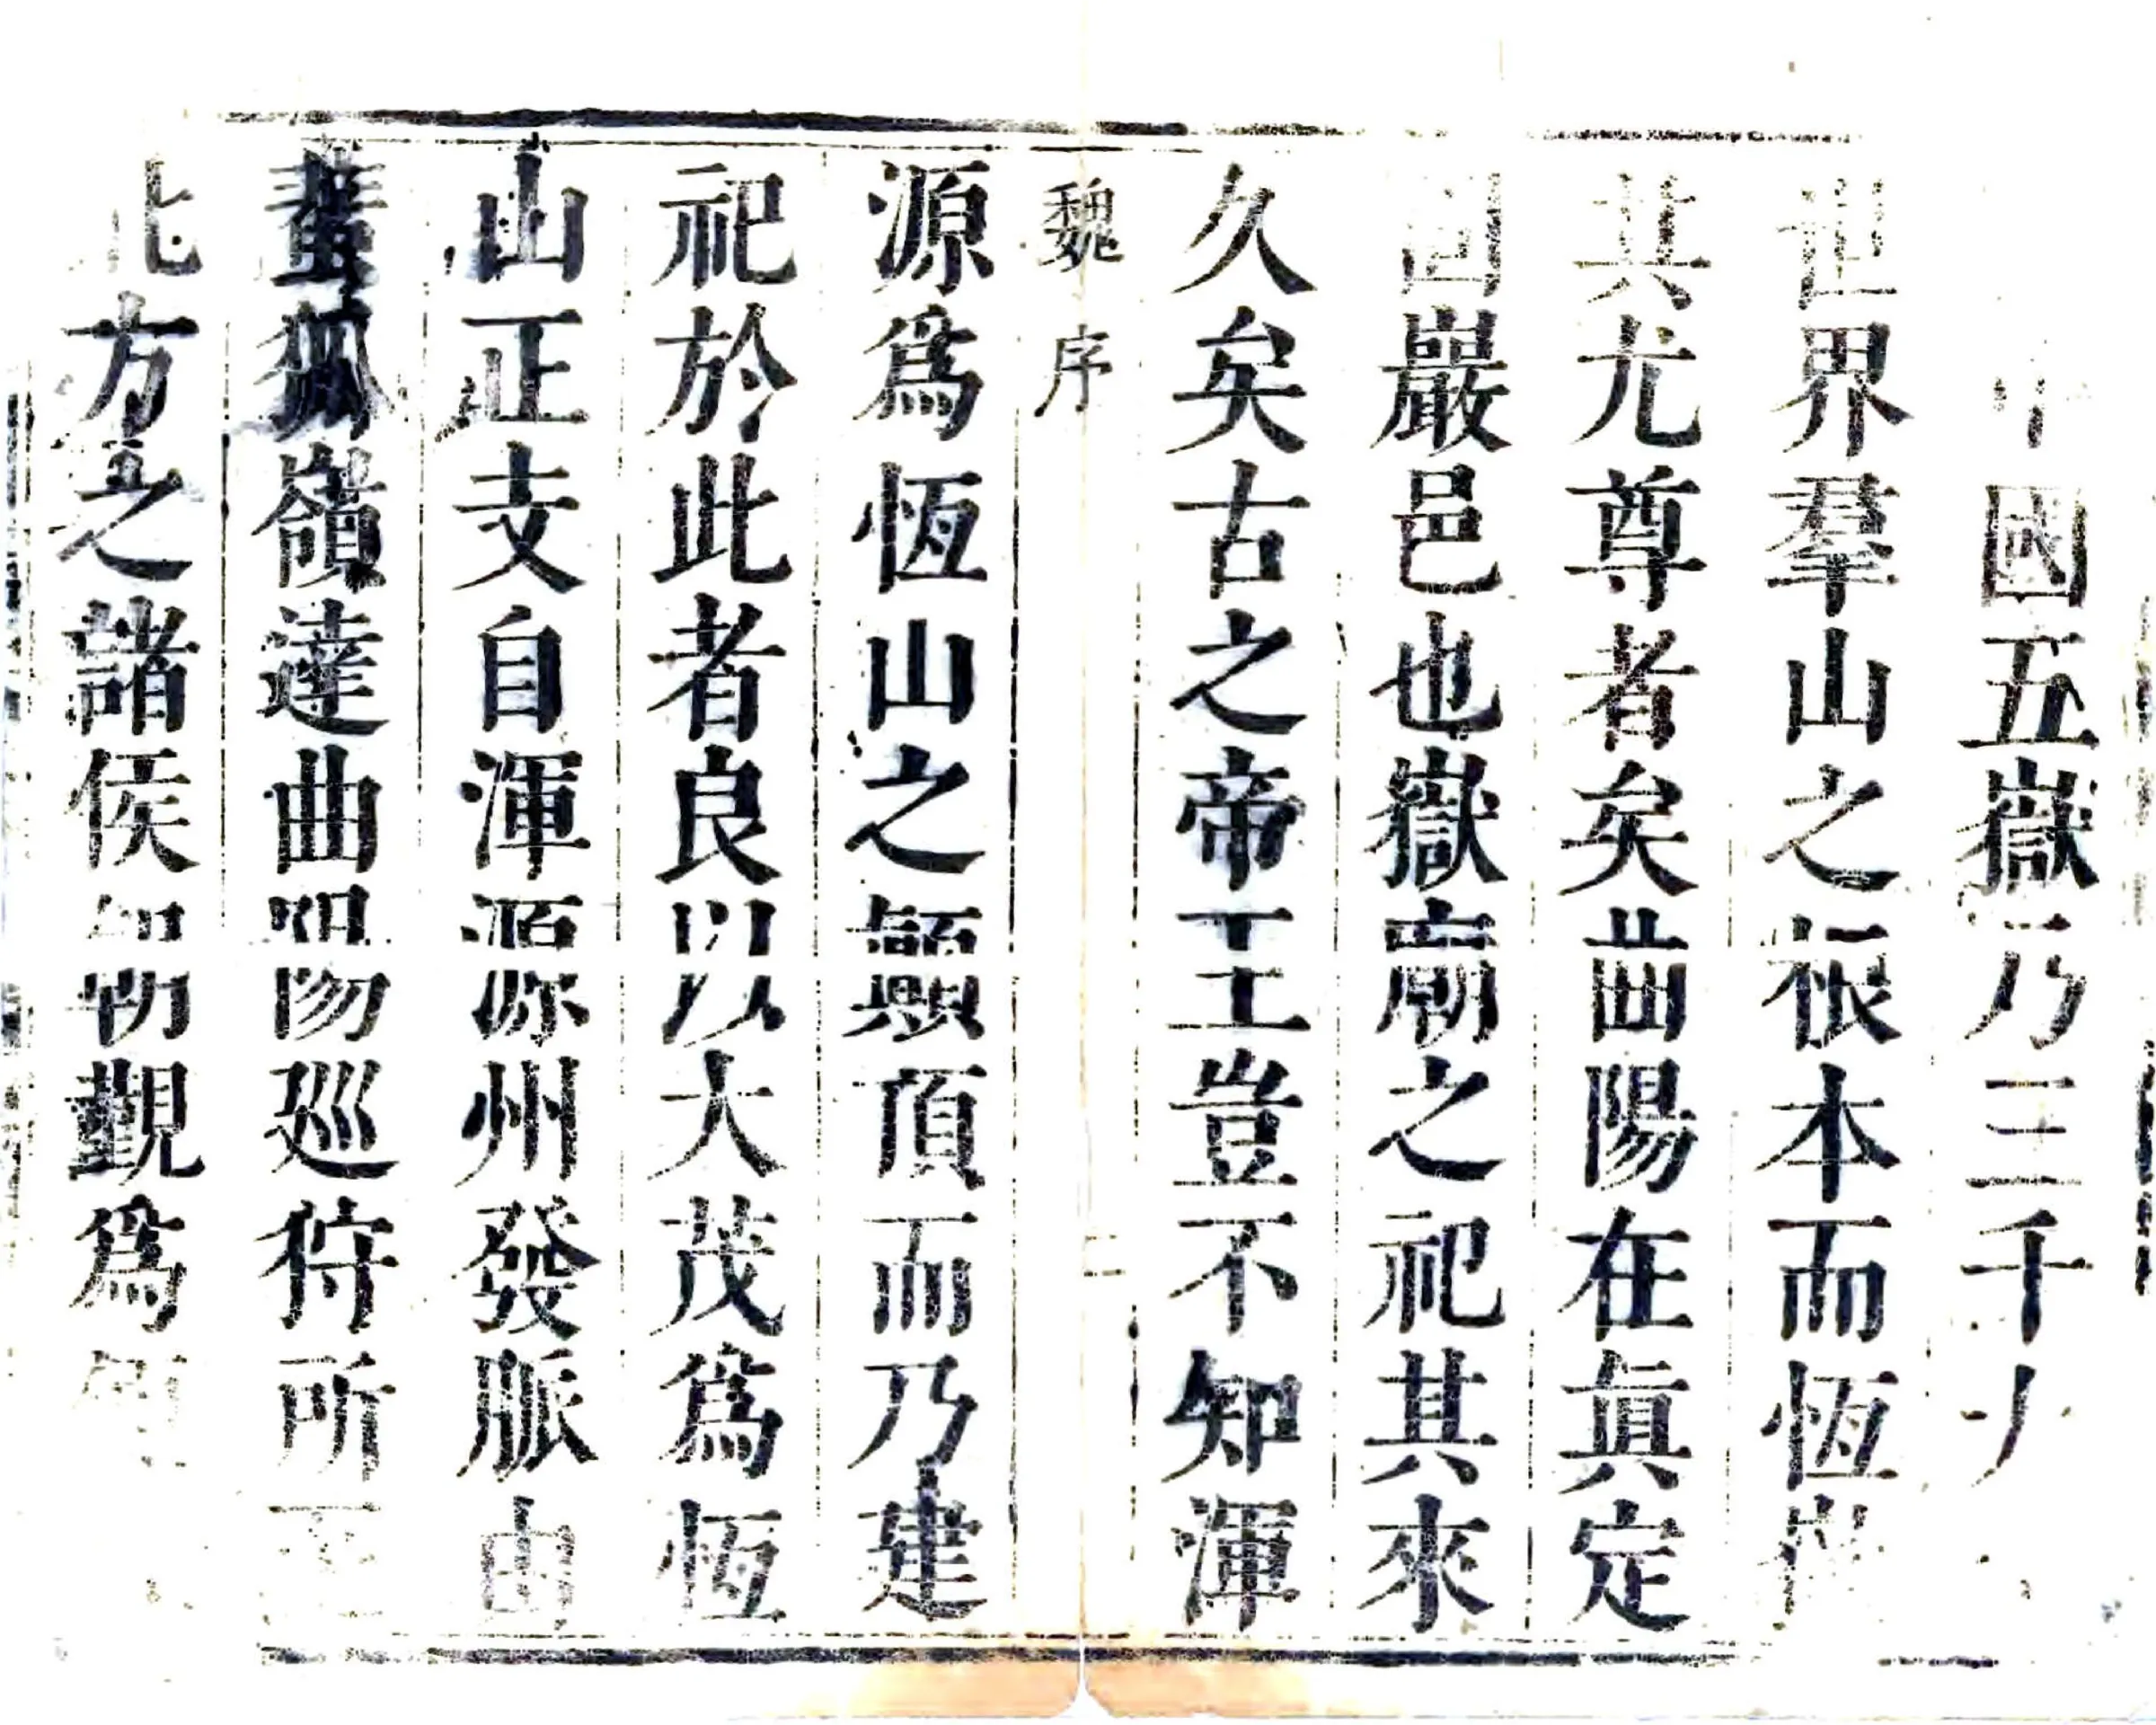 國五嶽乃三千
世界羣山之根本而恆嶽
其尤尊者矣曲陽在眞定
固巖邑也嶽廟之祀其來
久矣古之帝王豈不知渾
魏序
源爲恆山之顚頂而乃建
祀於此者良以大茂爲恆
山正支自渾源州發脈由
蜚狐嶺達曲陽巡狩所至
北方之諸侯朝覲爲